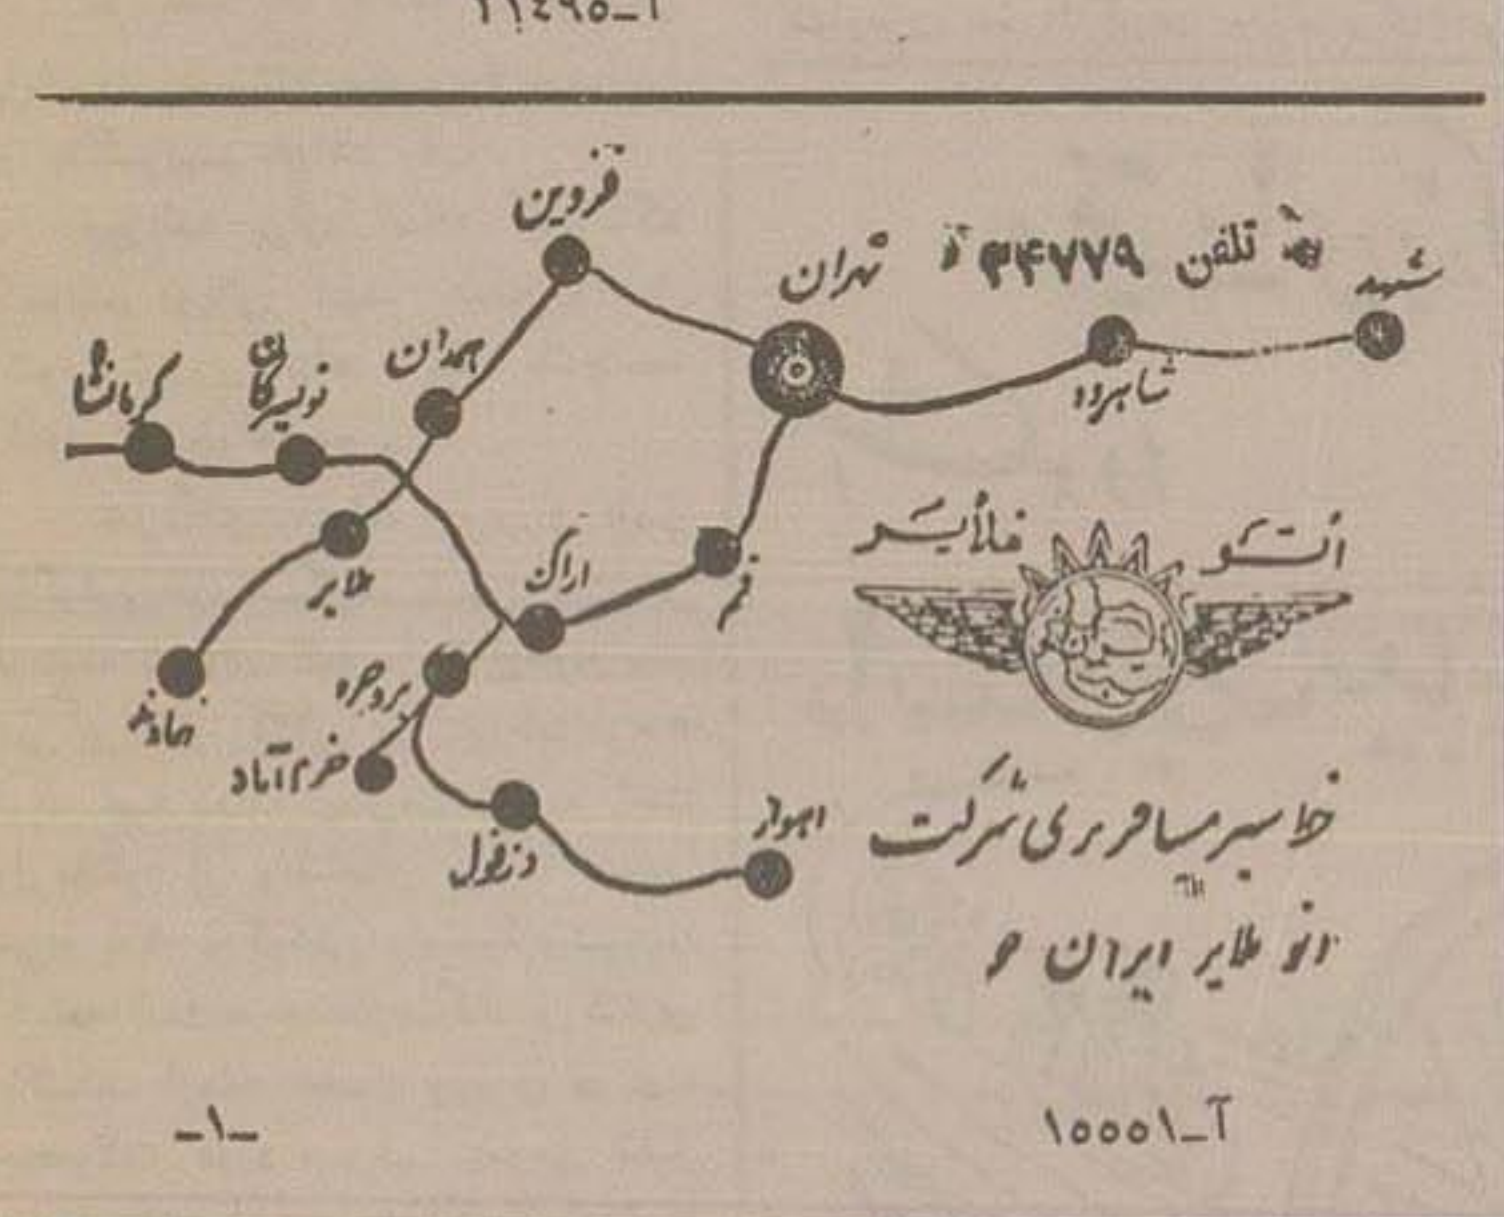 آ_۱۱٤۹٥
قزوین
تهران
تلفن ۳۴۷۷۹
مشهد
شاهرود
همدان
تویسرکان
کرمانشاه
ملایر
نهاوند
اراک
قم
بروجرد
خرم‌آباد
دزفول
اهواز
اتو
ملایر
خط سیر مسافربری شرکت
اتو ملایر ایران
آ_۱۰۰۰۱
_۱_